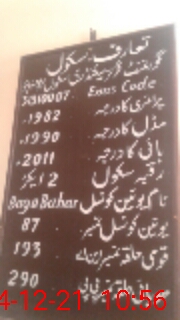 تعارف سکول
گورنمنٹ گرلز ہائر سیکنڈری سکول
Emis Code
پرائمری کا درجہ 1982
مڈل کا درجہ 1990
ہائی کا درجہ 2011
رقبہ سکول 2 ایکڑ
نام یونین کونسل Baga Bahar
یونین کونسل نمبر 87
قومی حلقہ نمبر این اے 193
290 پی پی
4-12-21 10:56